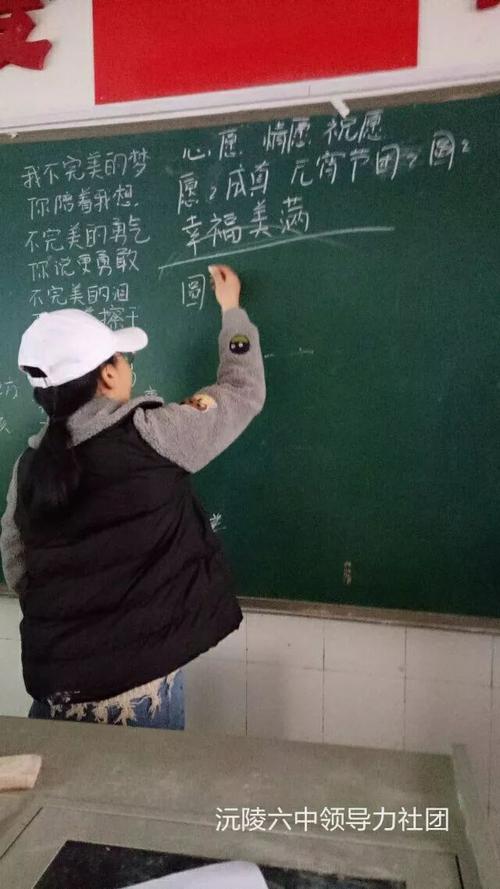 我不完美的梦
你陪着我想
不完美的勇气
你说更勇敢
不完美的泪
擦干
心愿 情愿 祝愿
愿々成真 元宵节团々圆々
幸福美满
圆
沅陵六中领导力社团